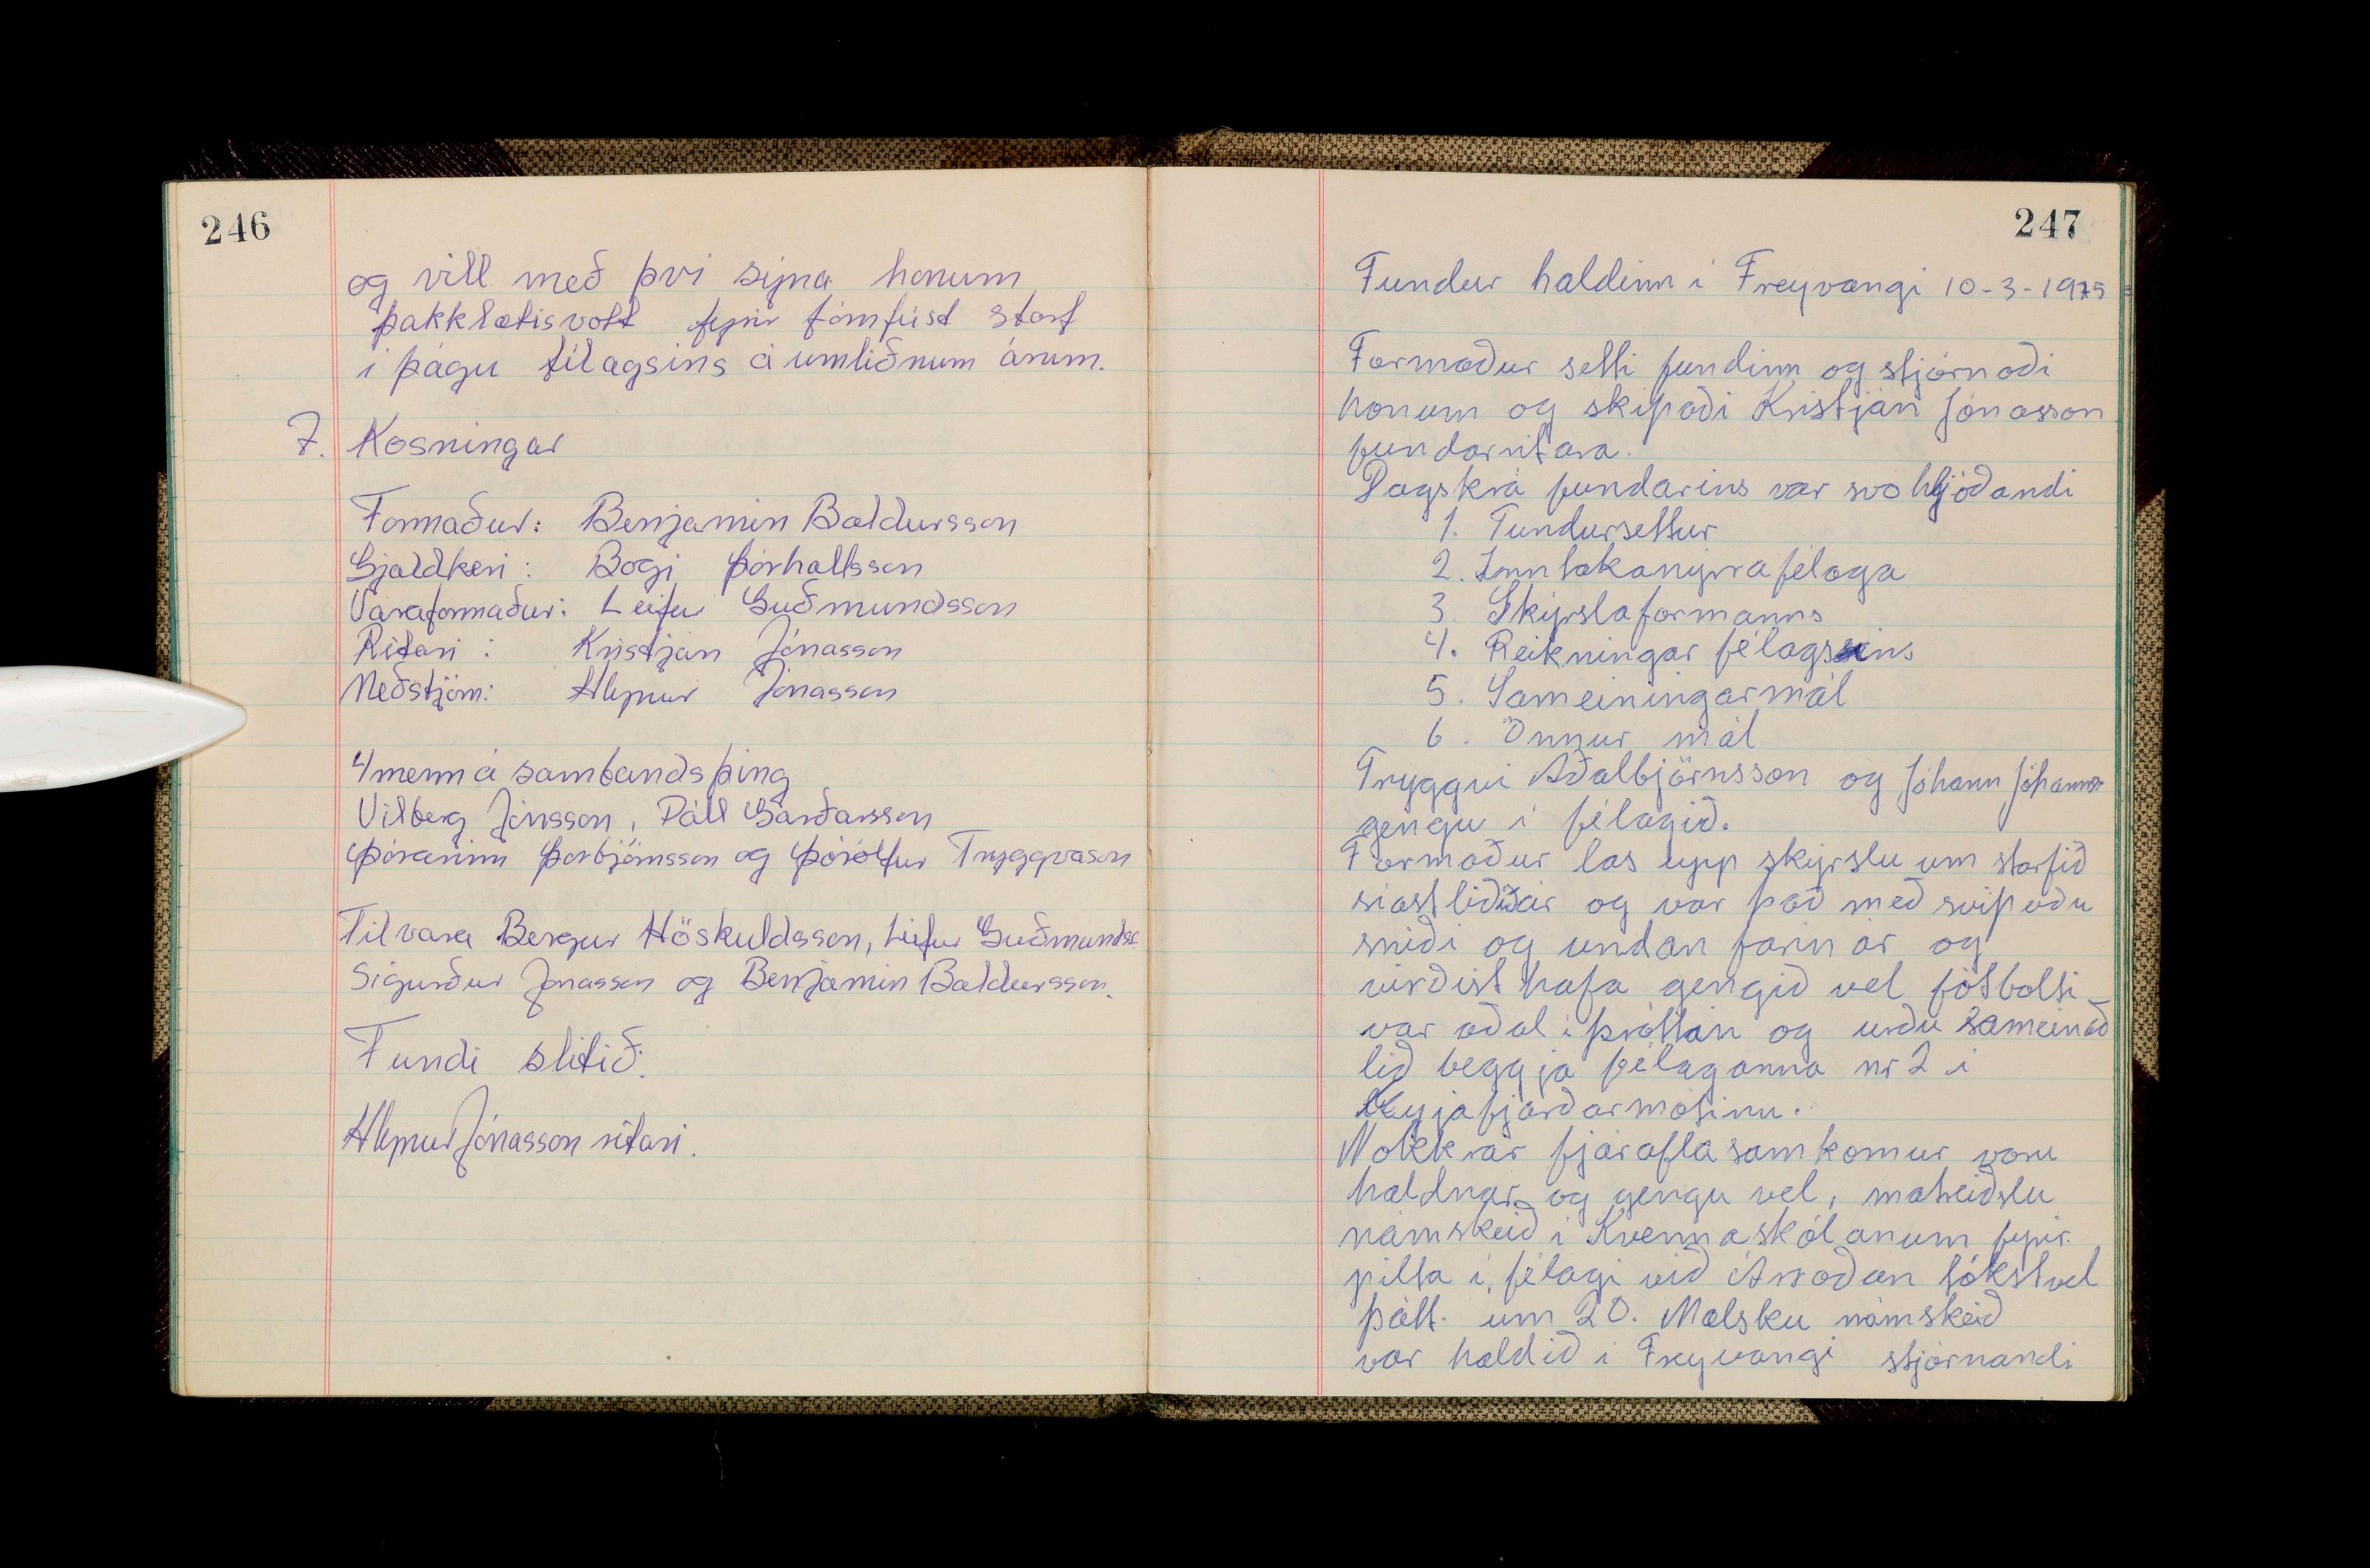 246
og vill með því sýna honum
þakklætisvott fyrir fórnfúst starf
í þágu félagsins á umliðnum árum.
7. Kosningar
Formaður: Benjamin Baldursson
Gjaldkeri: Bogi Þórhallsson
Varaformaður: Leifur Guðmundsson
Ritari: Kristján Jónasson
Meðstjórn: Hlynur Jónasson
4 menn á sambandsþing
Vilberg Jónsson, Páll Garðarsson
Þórarinn Þorbjörnsson og Þórólfur Tryggvason
Til vara Bergur Höskuldsson, Leifur Guðmundss
Sigurður Jónasson og Benjamin Baldursson.
Fundi slitið.
Hlynur Jónasson ritari.
247
Fundur haldinn í Freyvangi 10-3-1975
Formaður setti fundinn og stjórnaði
honum og skipaði Kristján Jónasson
fundarritara.
Dagskrá fundarins var svo hljóðandi
1. Fundursettur
2. Inntakanýrra félaga
3. Skýrslaformanns
4. Reikningar félagsins
5. Sameiningarmál
6. Önnur mál
Tryggvi Aðalbjörnsson og Jóhann Jóhanns
gengu í félagið.
Formaður las upp skýrslu um starfið
síastliðið ár og var það með svipuðu
sniði og undan farin ár og
virðist hafa gengið vel fótbolti
var aðal íþróttin og urðu sameinað
lið beggja félaganna nr 2 í
Eyjafjarðarmótinu.
Nokkrar fjáraflasamkomur voru
haldnar og gengu vel, matreiðslu
námskeið í Kvennaskólanum fyrir
pilta í félagi við Ársoðan tókst vel
þátt. um 20. Mælsku námskeið
var haldið í Freyvangi stjórnandi